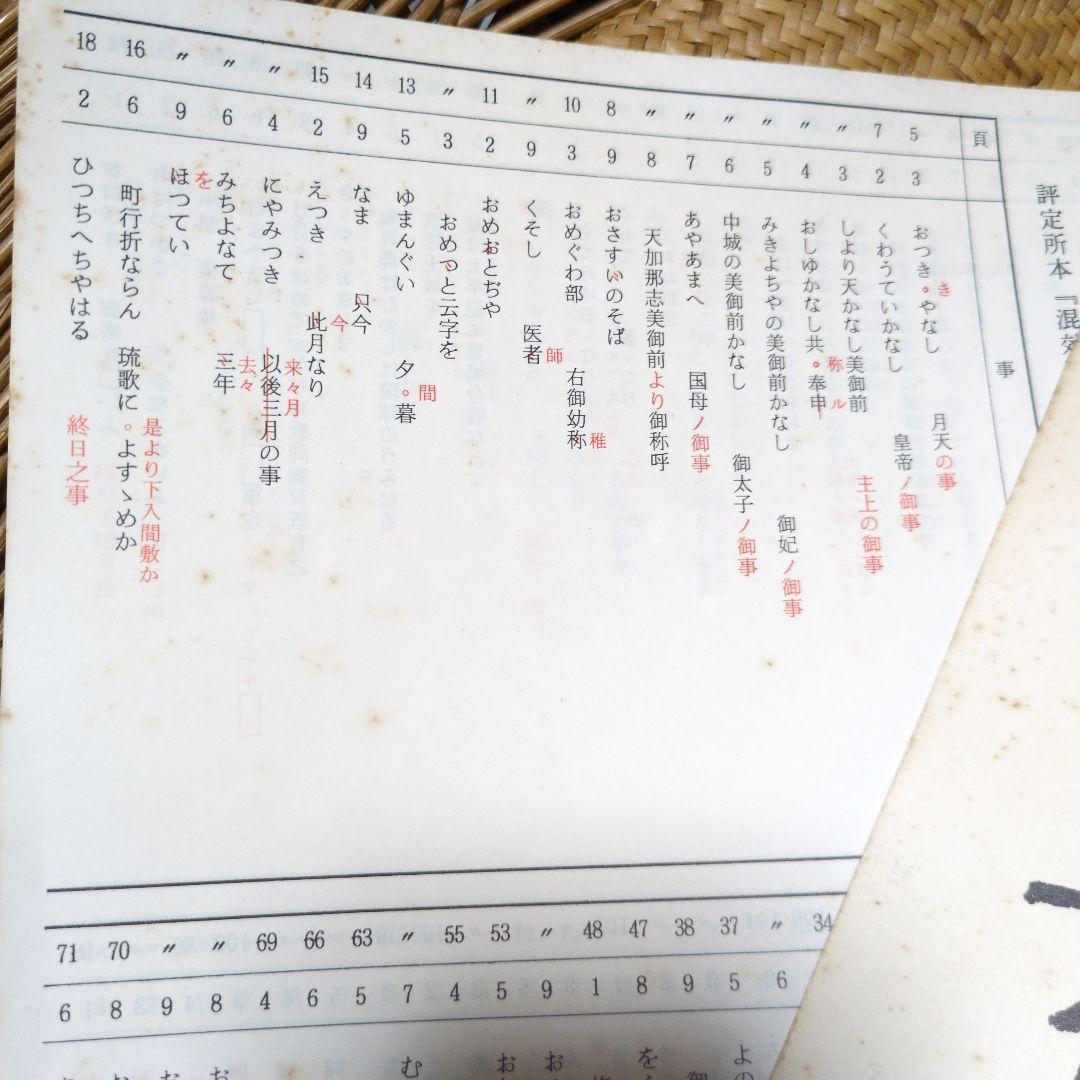 評定所本『混効
頁
事
5 3 おつき。やなし 月天の事
き
7 2 くわうていかなし 皇帝ノ御事
〃 3 しより天かなし美御前 主上の御事
〃 4 おしゆかなし共。奉申
称ル
〃 5 みきよちやの美御前かなし 御妃ノ御事
〃 6 中城の美御前かなし 御太子ノ御事
〃 7 あやあまへ 国母ノ御事
〃 8 天加那志美御前より御称呼
8 9 おさすいのそば
10 3 おめぐわ部 右御幼称
稚
〃 9 くそし 医者
師
11 2 おめおとぢや
〃 3 おめつと云字を
13 5 ゆまんぐい 夕。暮
間
14 9 なま 只今
15 2 えつき 此月なり
今
〃 4 にやみつき 以後三月の事
来々月
〃 6 みちよなて 三年
去々
〃 9 ほつてい
を
16 6 町行折ならん 琉歌に。よすゝめか
是より下入間敷か
18 2 ひつちへちやはる
終日之事
34
〃 6
37 5 よの
38 9 御
47 8 を
48 1
〃 9 お
53 5 お
55 4
〃 7 む
63 5
66 6
69 4
〃 8 お
〃 9 お
70 8 お
71 6